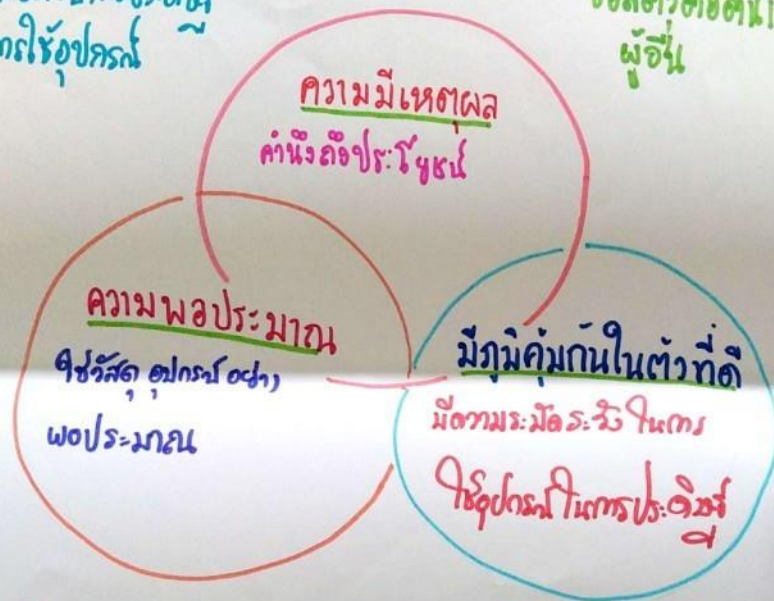 การใช้อุปกรณ์
ผู้อื่น
ความมีเหตุผล
คำนึงถึงประโยชน์
ความพอประมาณ
ใช้วัสดุ อุปกรณ์ อย่าง
พอประมาณ
มีภูมิคุ้มกันในตัวที่ดี
มีความระมัดระวัง ในการ
ใช้อุปกรณ์ในการประดิษฐ์